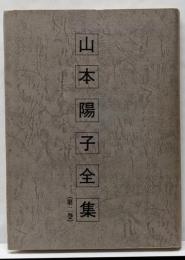 山本陽子全集
(第一巻)